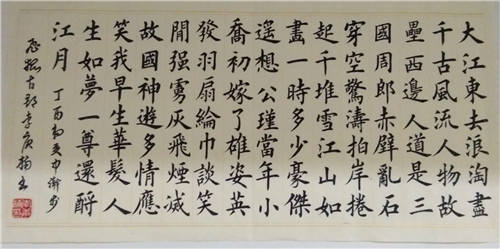 大江東去浪淘盡
千古風流人物故
壘西邊人道是三
國周郎赤壁亂石
穿空驚濤拍岸捲
起千堆雪江山如
畫一時多少豪傑
遙想公瑾當年小
喬初嫁了雄姿英
發羽扇綸巾談笑
閒强虜灰飛煙滅
故國神遊多情應
笑我早生華髮人
生如夢一尊還酹
江月 丁酉初夏